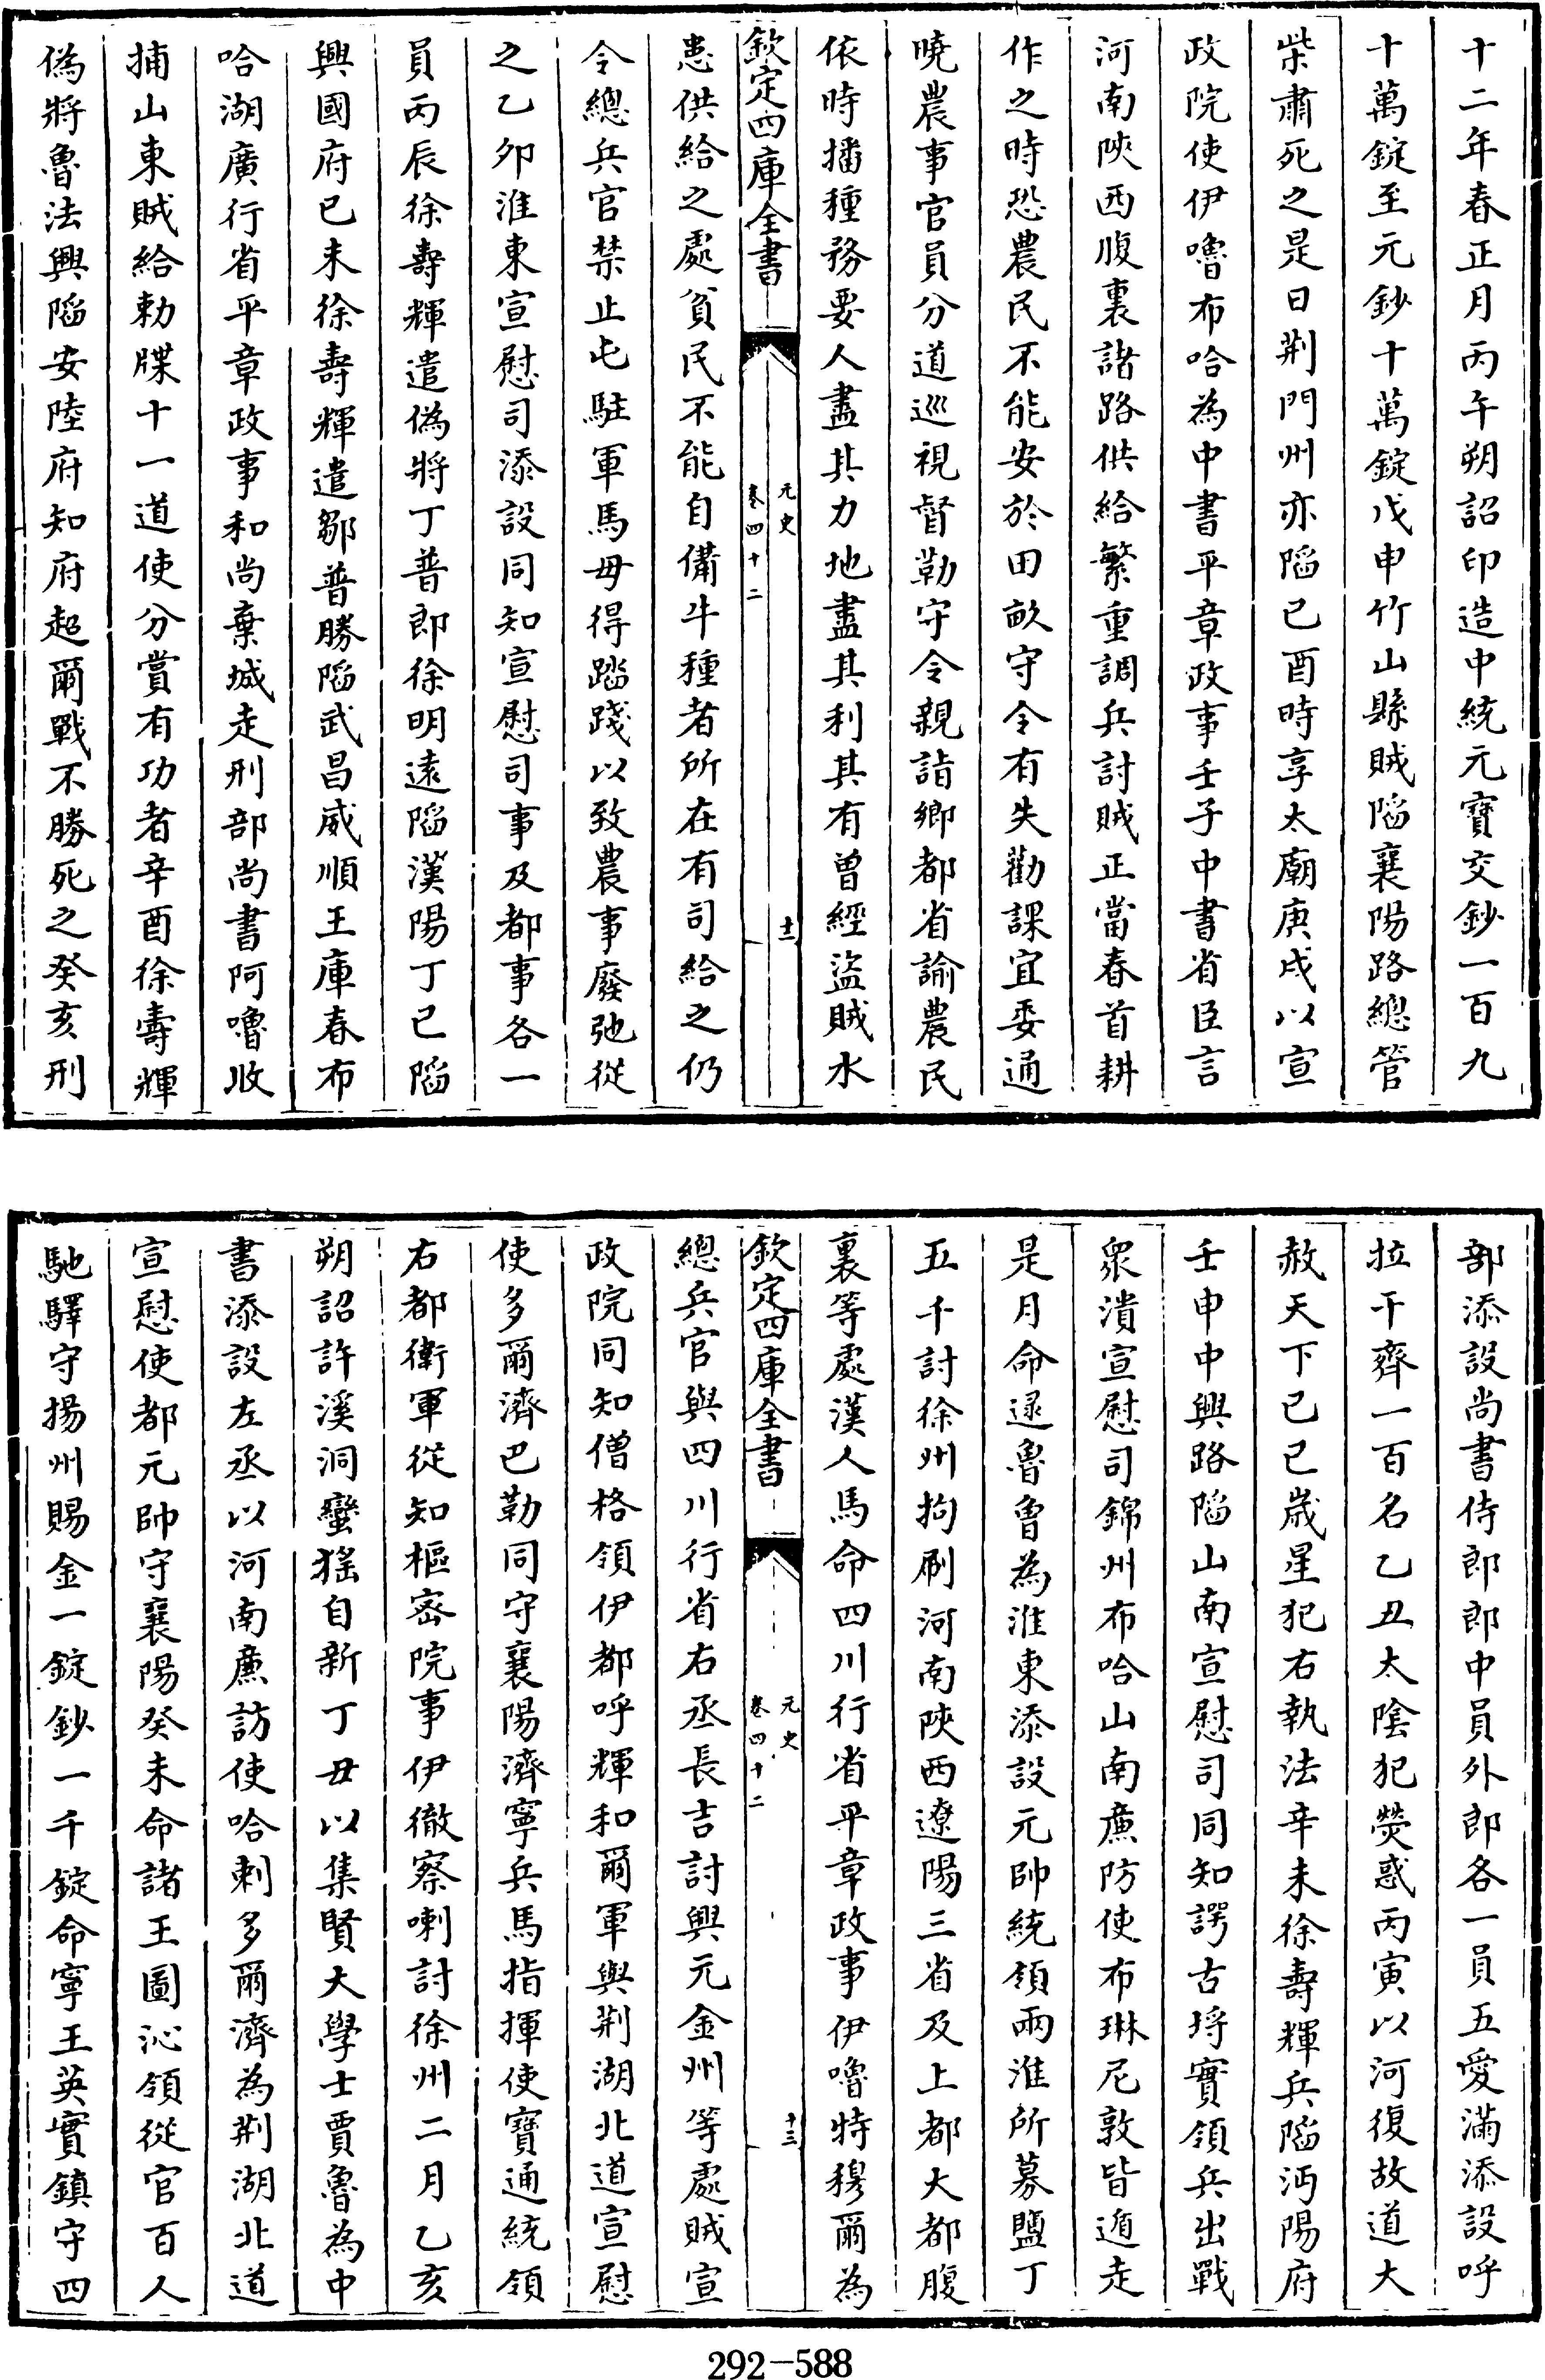 十二年春正月丙午朔詔印造中統元寶交鈔一百九
十萬錠至元鈔十萬錠戊申竹山縣賊陷襄陽路總管
柴肅死之是日荆門州亦陷己酉時享太廟庚戌以宣
政院使伊嚕布哈為中書平章政事壬子中書省臣言
河南陜西腹裏諸路供給繁重調兵討賊正當春首耕
作之時恐農民不能安於田畝守令有失勸課宜委通
曉農事官員分道巡視督勒守令親詣鄉都省諭農民
依時播種務要人盡其力地盡其利其有曾經盜賊水
欽定四庫全書
元史
卷四十二
十二
患供給之處貧民不能自備牛種者所在有司給之仍
令總兵官禁止屯駐軍馬毋得踏踐以致農事廢弛從
之乙卯淮東宣慰司添設同知宣慰司事及都事各一
員丙辰徐壽輝遣偽將丁普郎徐明遠陷漢陽丁巳陷
興國府己未徐壽輝遣鄒普勝陷武昌威順王庫春布
哈湖廣行省平章政事和尚棄城走刑部尚書阿嚕收
捕山東賊給勅牒十一道使分賞有功者辛酉徐壽輝
偽將魯法興陷安陸府知府超爾戰不勝死之癸亥刑
部添設尚書侍郎郎中員外郎各一員五愛滿添設呼
拉干齊一百名乙丑太陰犯熒惑丙寅以河復故道大
赦天下己巳歲星犯右執法辛未徐壽輝兵陷沔陽府
壬申中興路陷山南宣慰司同知諤古埒實領兵出戰
衆潰宣慰司錦州布哈山南廉防使布琳尼敦皆遁走
是月命逯魯曾為淮東添設元帥統領兩淮所募鹽丁
五千討徐州拘刷河南陜西遼陽三省及上都大都腹
裏等處漢人馬命四川行省平章政事伊嚕特穆爾為
欽定四庫全書
元史
卷四十二
十三
總兵官與四川行省右丞長吉討興元金州等處賊宣
政院同知僧格領伊都呼輝和爾軍與荆湖北道宣慰
使多爾濟巴勒同守襄陽濟寧兵馬指揮使寶通統領
右都衛軍從知樞密院事伊徹察喇討徐州二月乙亥
朔詔許溪洞蠻猺自新丁丑以集賢大學士賈魯為中
書添設左丞以河南廉訪使哈剌多爾濟為荆湖北道
宣慰使都元帥守襄陽癸未命諸王圖沁領從官百人
馳驛守揚州賜金一錠鈔一千錠命寧王英實鎮守四
292-588